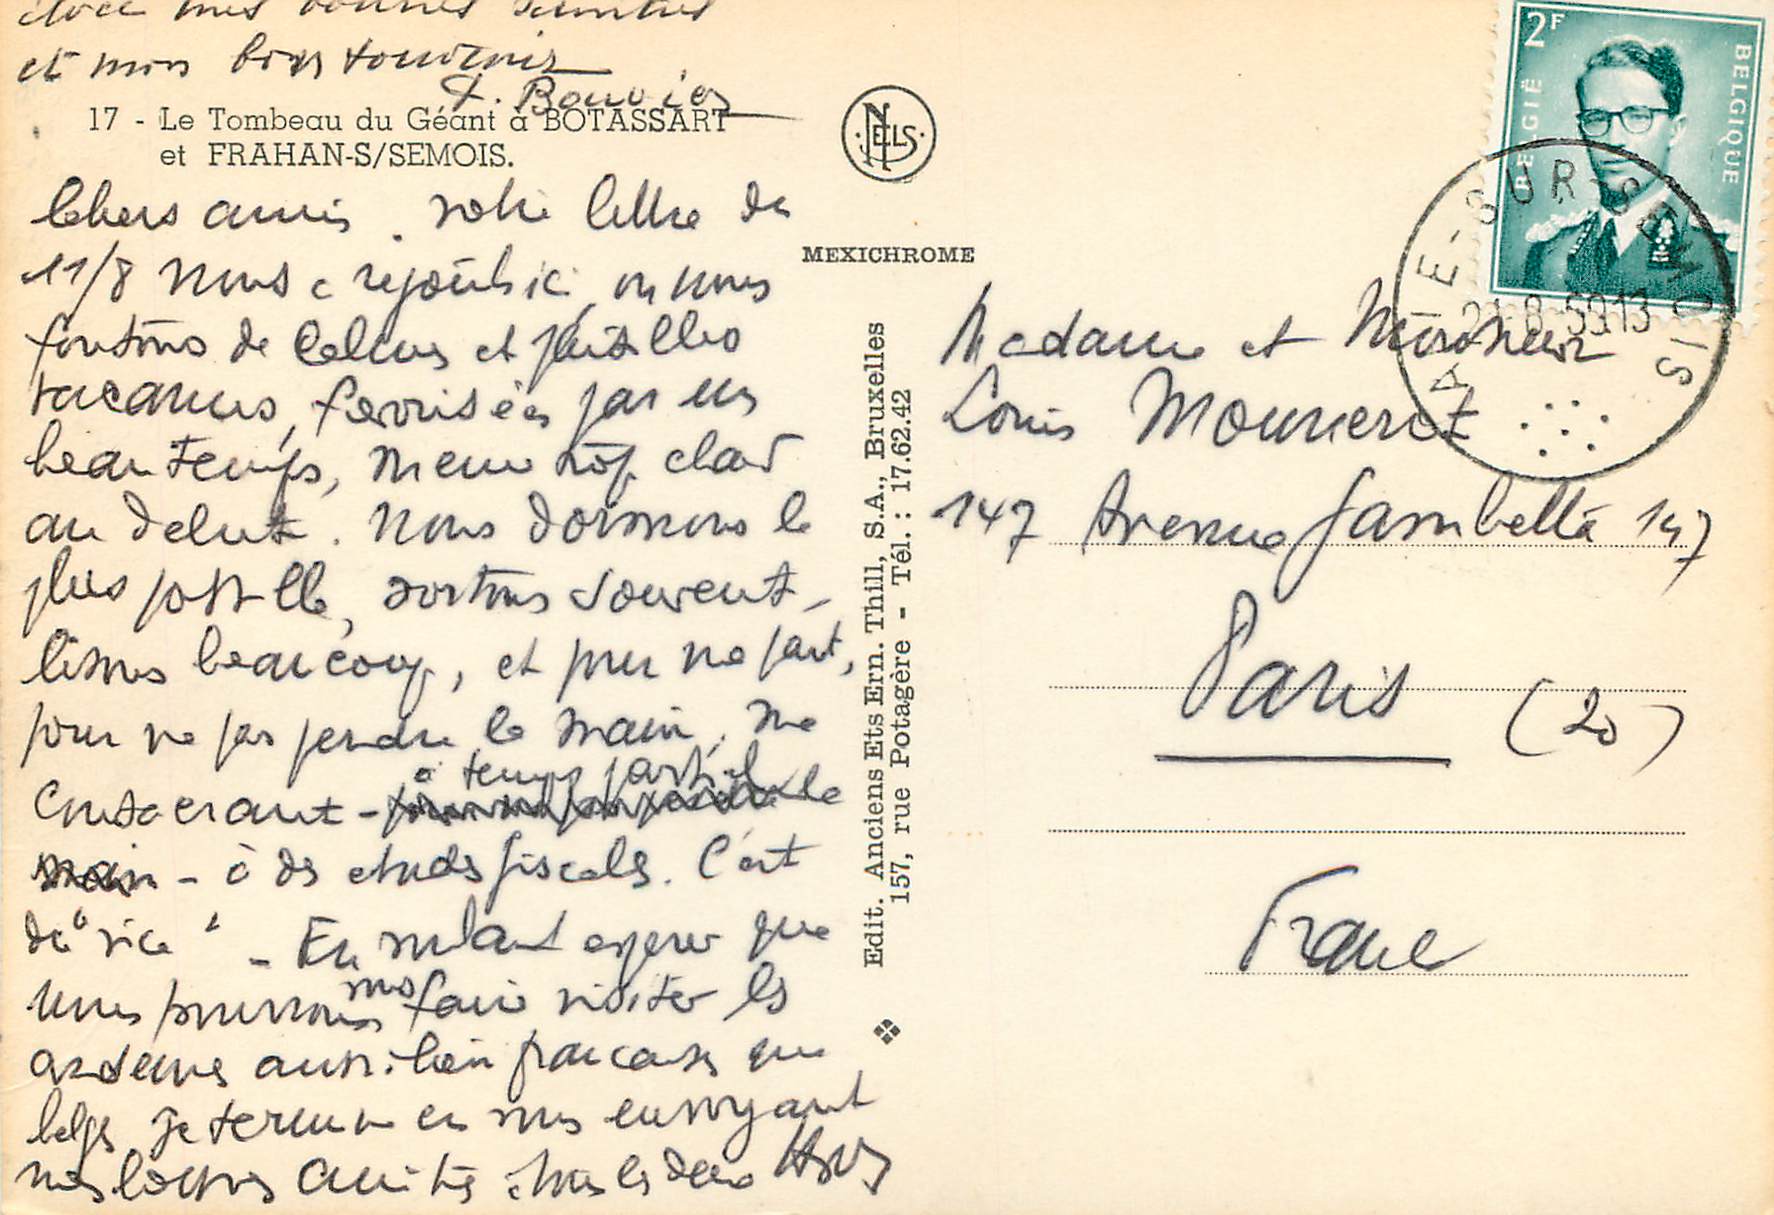 avec mes bonnes amitiés
et mon bon souvenir
Bouvier
17 - Le Tombeau du Géant à BOTASSART
et FRAHAN-S/SEMOIS.
NELS
Chers amis. votre lettre du
11/8 nous a rejoints ici, ou nous
goutons de calmes et paisibles
vacances, favorisées par un
beau temps, meme trop chaud
au debut. Nous dormons le
plus possible, sortons souvent,
lisons beaucoup, et pour ma part,
pour ne pas perdre la main, me
consacrant - à temps partiel
- à des etudes fiscales. C'est
du "vice" - En voulant esperer que
nous pourrons vous faire visiter les
ardennes aussi bien francaises que
belges je termine en vous envoyant
nos bonnes amitiés à tous les deux
MEXICHROME
Edit. Anciens Ets Ern. Thill, S.A., Bruxelles
157, rue Potagère - Tél. : 17.62.42
2F
BELGIË
BELGIQUE
ALLE-SUR-SEMOIS
Madame et Monsieur
Louis Mourierot
147 Avenue Gambetta 147
Paris (20)
France